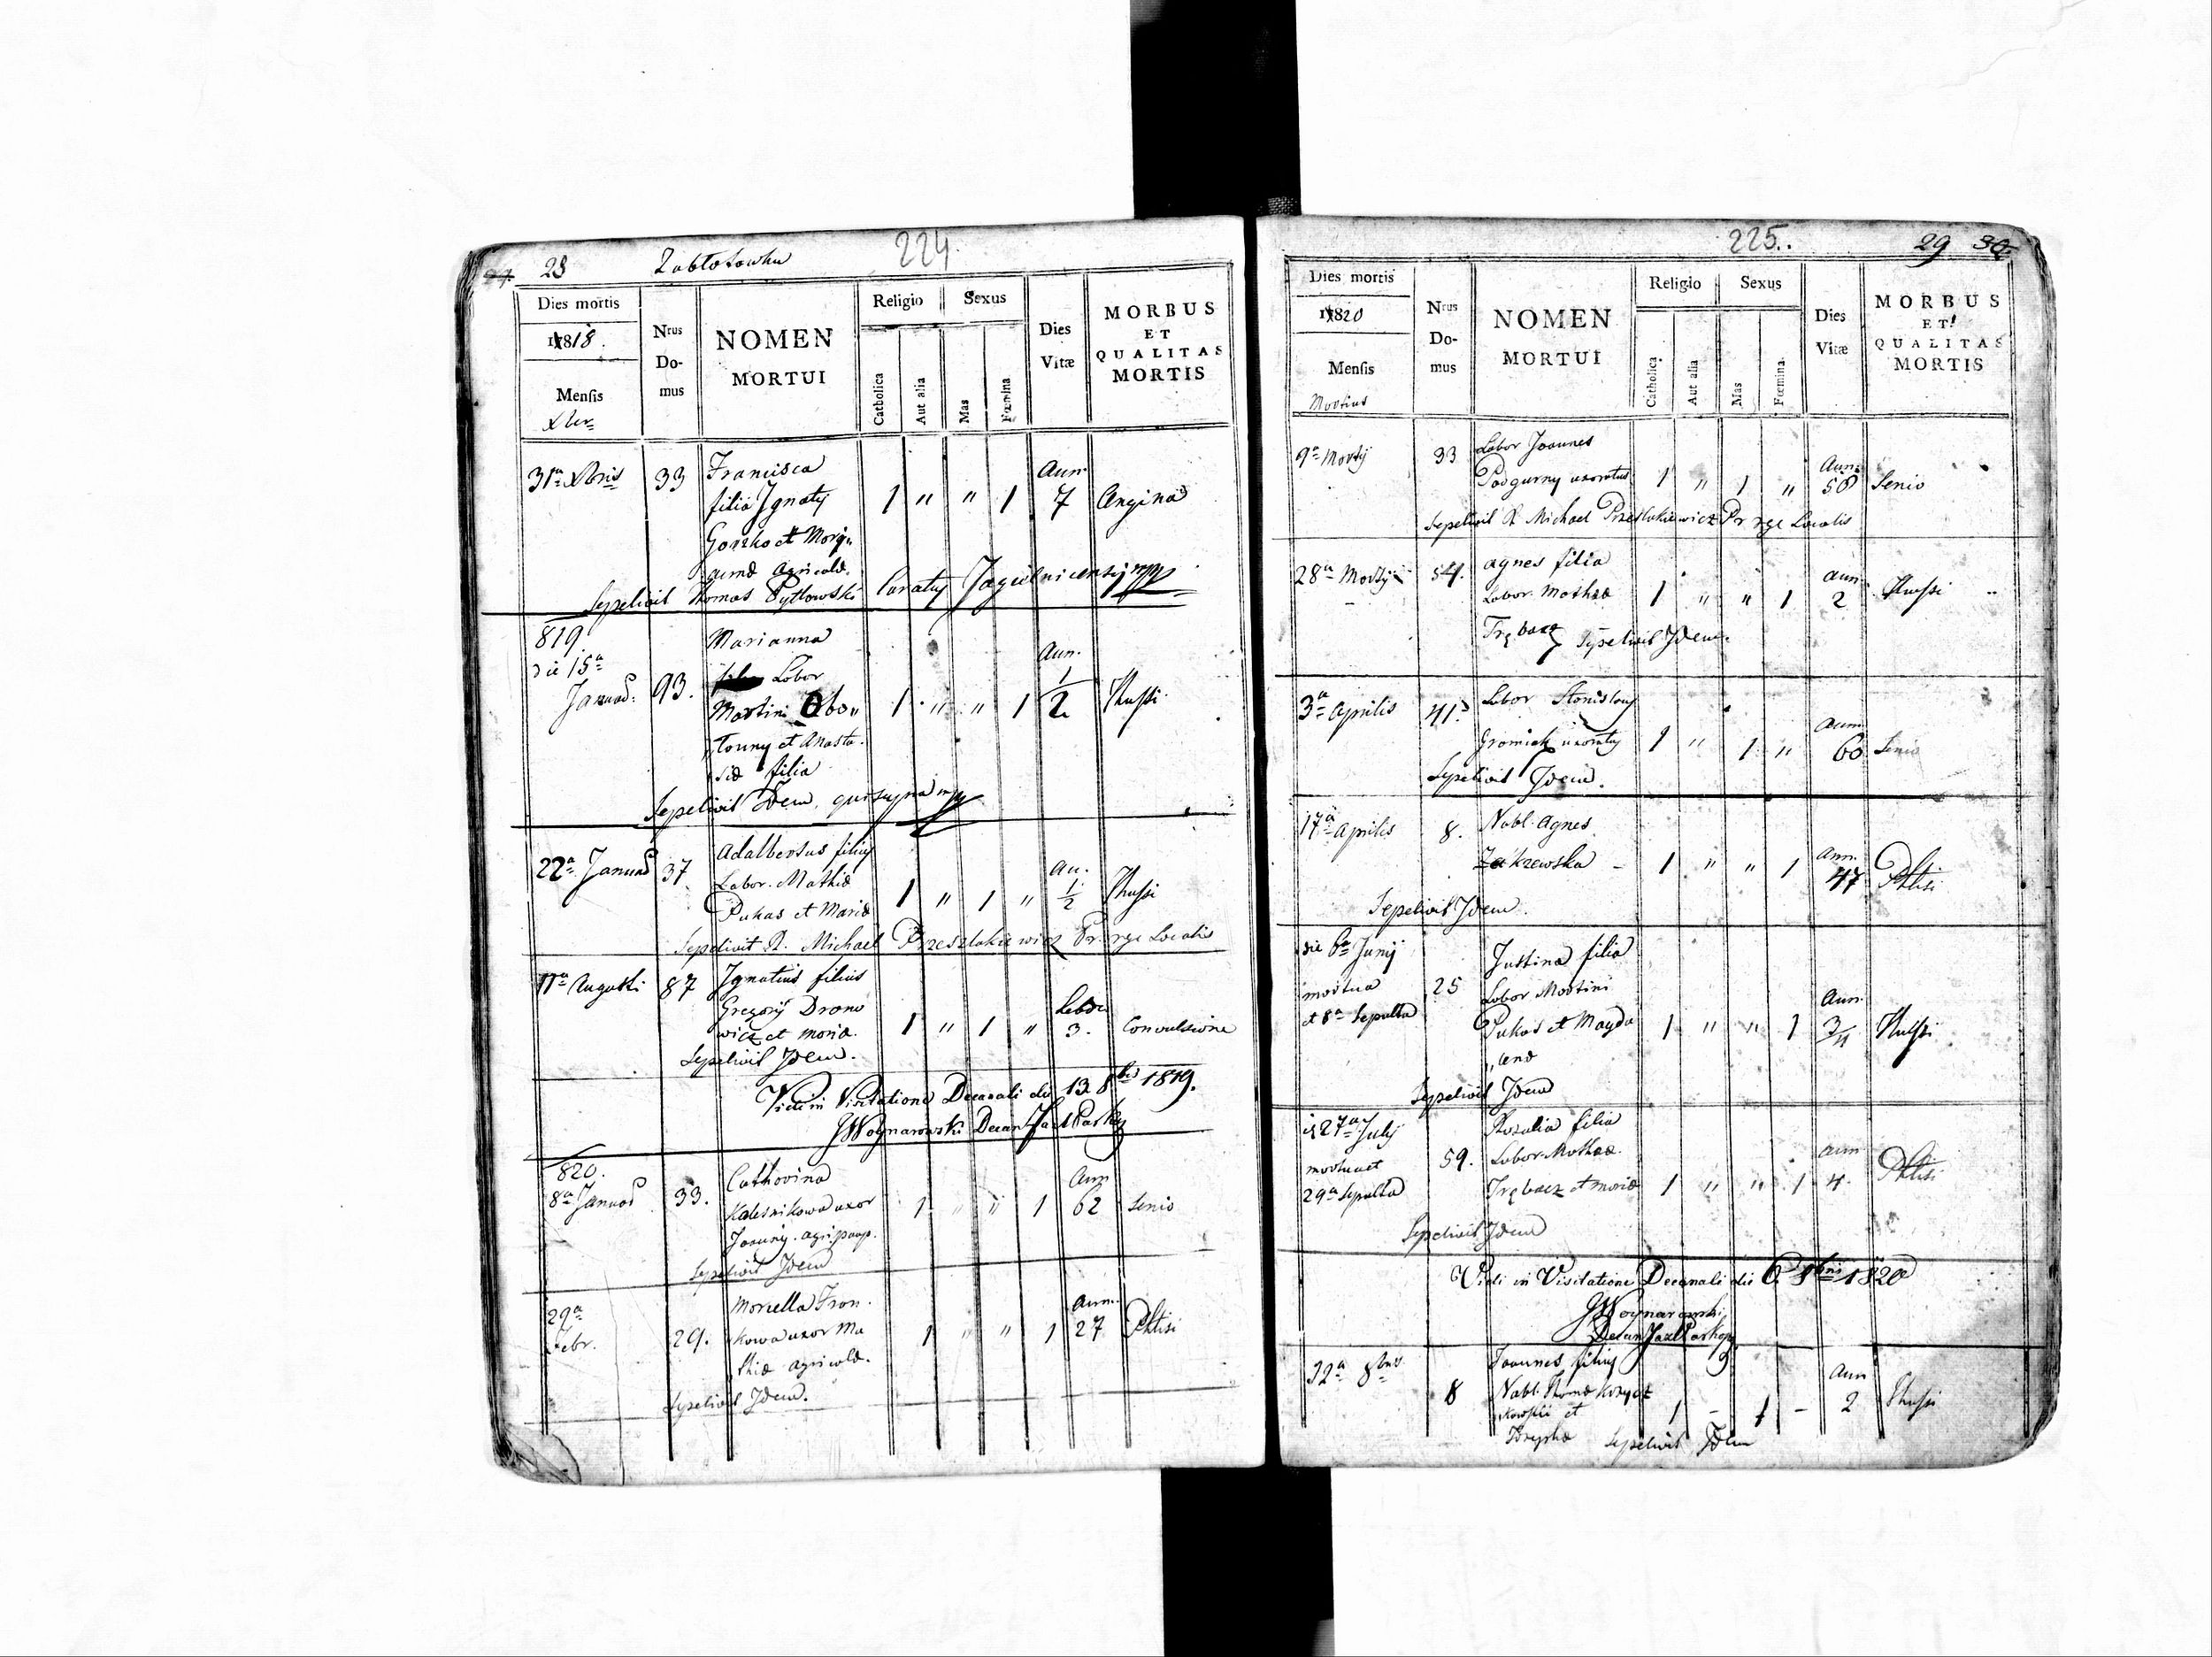 28 Zabłotowka 224
Dies mortis
1818.
Mensis
Xber
Nrus Domus
NOMEN MORTUI
Religio
Catholica
Aut alia
Sexus
Mas
Fœmina
Dies Vitæ
MORBUS ET QUALITAS MORTIS
31a Xbris 33 Francisca
filia Ignaty 1 " " 1 Ann. 7 Angina
Gorzko et Mary,,
annæ Agricolæ.
Sepelivit Thomas Pytlowski Curatus Jagielnicensis mpp
819.
die 15a
Januar: 93. Marianna
Labor
Martini Obo,, 1 " " 1 Ann. 1/2 Thussi
et Anasta.
siæ filia
Sepelivit Idem, qui supra mpp
22a Januar 37 Adalbertus filius
Labor. Mathiæ 1 " 1 " An. 1/2 Thussi
Pukas et Mariæ
Sepelivit R. Michael Przeszlakiewicz Localis
11a Augusti 87 Ignatius filius
Gregorij Drono
wicz et Mariæ. 1 " 1 " 3. Convulsione
Sepelivit Idem.
Vidi in Visitatione Decanali die 13 8bris 1819.
JWoynarowski Decan
820.
8a Januar 33. Catharina
Kolesnikowa uxor 1 " " 1 Ann 62 Senio
Joannis. agri.
Sepelivit Idem
29a
Febr. 29. Fron.
kowa uxor Ma 1 " " 1 Ann. 27 Phtisi
thiæ agricolæ.
Sepelivit Idem.
225. 29 30
Dies mortis
1820
Mensis
Martius
Nrus Domus
NOMEN MORTUI
Religio
Catholica
Aut alia
Sexus
Mas
Fœmina
Dies Vitæ
MORBUS ET QUALITAS MORTIS
9a Martij 33 Labor Joannes
Podgurny uxoratus 1 " 1 " Ann. 58 Senio
Sepelivit R Michael Przeszlakiewicz Localis
28a Martij 54. Agnes filia
Labor. Mathiæ 1 " " 1 Ann 2 Thussi
Trębacz Sepelivit Idem.
3a Aprilis 41. Labor Stanislaus
Gromiak uxoratus 1 " 1 " Ann 60 Senio
Sepelivit Idem.
17a Aprilis 8. Nobl. Agnes
Zakrzewska - 1 " " 1 Ann. 47 Phtisi
Sepelivit Idem.
die 6a Junij
mortua
et 8a Sepulta 25 Justina filia
Labor Martini
Pukas et Magda 1 " " 1 Ann. 3/4 Thussi
,,lenæ
Sepelivit Idem
27a July
mortua et
29a Sepulta 59. Rosalia filia
Labor Mathiæ.
Trębacz et Mariæ 1 " " 1 Ann 4. Phtisi
Sepelivit Idem
Vidi in Visitatione Decanali die 6 8bris 1820
JWoynarowski
Decan
8bris 8 Joannes filius
Nobl. Thomæ
,,kowski et 1 - 1 - Ann 2 Thussi
Sepelivit Idem